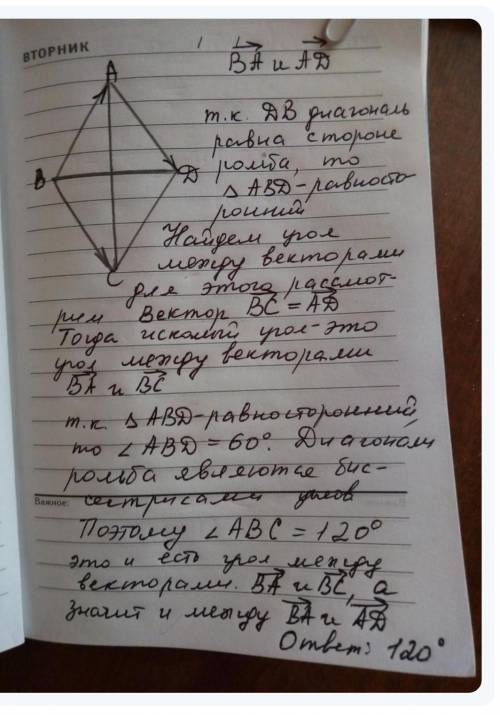 ВТОРНИК
BA и AD
A
т.к. DB диагональ
равна стороне
ромба, то
B
D
△ ABD-равносто-
ронний
Найдем угол
между векторами
C
для этого рассмот-
рим вектор BC = AD
Тогда искомый угол-это
угол между векторами
BA и BC
т.к. △ ABD-равносторонний
то ∠ ABD = 60°. Диагонали
ромба являются бис-
Важное:
сектрисами углов
Поэтому ∠ ABC = 120°
это и есть угол между
векторами. BA и BC, а
значит и между BA и AD
Ответ: 120°